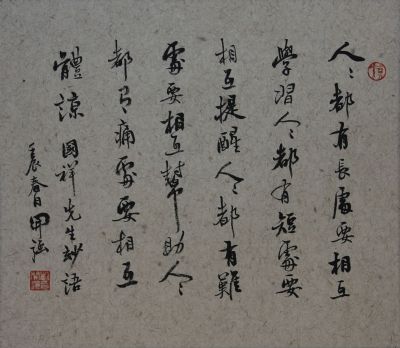 人〻都有長處要相互
學習人〻都有短處要
相互提醒人〻都有難
處要相互幫助人〻
都有痛處要相互
體諒 國祥先生妙語
壬辰春日